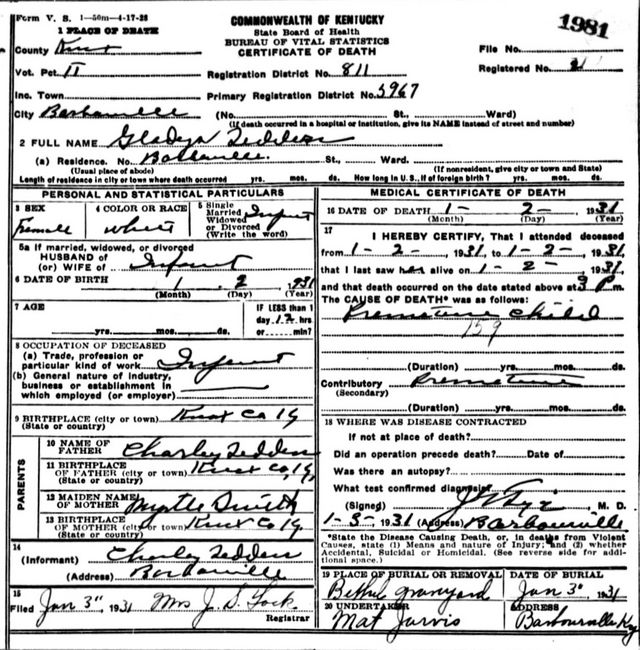 Form V. S. 1-50m-4-17-28
COMMONWEALTH OF KENTUCKY
State Board of Health
BUREAU OF VITAL STATISTICS
CERTIFICATE OF DEATH
1981
1 PLACE OF DEATH
County Knox
File No.
Vot. Pct. II
Registration District No. 811
Registered No. 21
Inc. Town
Primary Registration District No. 5967
City Barbourville (No. St., Ward)
(If death occurred in a hospital or institution, give its NAME instead of street and number)
2 FULL NAME Gladys Tedders
(a) Residence. No. St., Ward.
(Usual place of abode) (If nonresident, give city or town and State)
Length of residence in city or town where death occurred yrs. mos. ds. How long in U. S., if of foreign birth? yrs. mos. ds.
PERSONAL AND STATISTICAL PARTICULARS
3 SEX
Female
4 COLOR OR RACE
White
5 Single
Married
Widowed
or Divorced
(Write the word)
Infant
5a If married, widowed, or divorced
HUSBAND of
(or) WIFE of Infant
6 DATE OF BIRTH 1 2 1931
(Month) (Day) (Year)
7 AGE
yrs. mos. ds.
IF LESS than 1
day 12 hrs
or min?
8 OCCUPATION OF DECEASED
(a) Trade, profession or
particular kind of work Infant
(b) General nature of industry,
business or establishment in
which employed (or employer)
9 BIRTHPLACE (city or town) Knox Co Ky
(State or country)
PARENTS
10 NAME OF
FATHER Charley Tedders
11 BIRTHPLACE
OF FATHER (city or town) Knox Co, Ky,
(State or country)
12 MAIDEN NAME
OF MOTHER Myrtle Smith
13 BIRTHPLACE
OF MOTHER (city or town) Knox Co Ky
(State or country)
14
(Informant) Charley Tedders
(Address)
15
Filed Jan 3" 1931 Mrs J. S. Lock
Registrar
MEDICAL CERTIFICATE OF DEATH
16 DATE OF DEATH 1- 2- 1931
(Month) (Day) (Year)
17
I HEREBY CERTIFY, That I attended deceased
from 1-2-, 1931, to 1-2-, 1931,
that I last saw her alive on 1-2-, 1931,
and that death occurred on the date stated above at 3 P m.
The CAUSE OF DEATH* was as follows:
Premature Child
159
(Duration) yrs. mos. ds.
Contributory Premature
(Secondary)
(Duration) yrs. mos. ds.
18 WHERE WAS DISEASE CONTRACTED
If not at place of death?
Did an operation precede death? Date of
Was there an autopsy?
What test confirmed diagnosis?
(Signed) M. D.
1-3-, 1931 (Address) Barbourville
*State the Disease Causing Death, or, in deaths from Violent
Causes, state (1) Means and nature of Injury; and (2) whether
Accidental, Suicidal or Homicidal. (See reverse side for addi-
tional space.)
19 PLACE OF BURIAL OR REMOVAL
Bethel Graveyard
DATE OF BURIAL
Jan 3" 1931
20 UNDERTAKER
Mat Jarvis
ADDRESS
Barbourville Ky